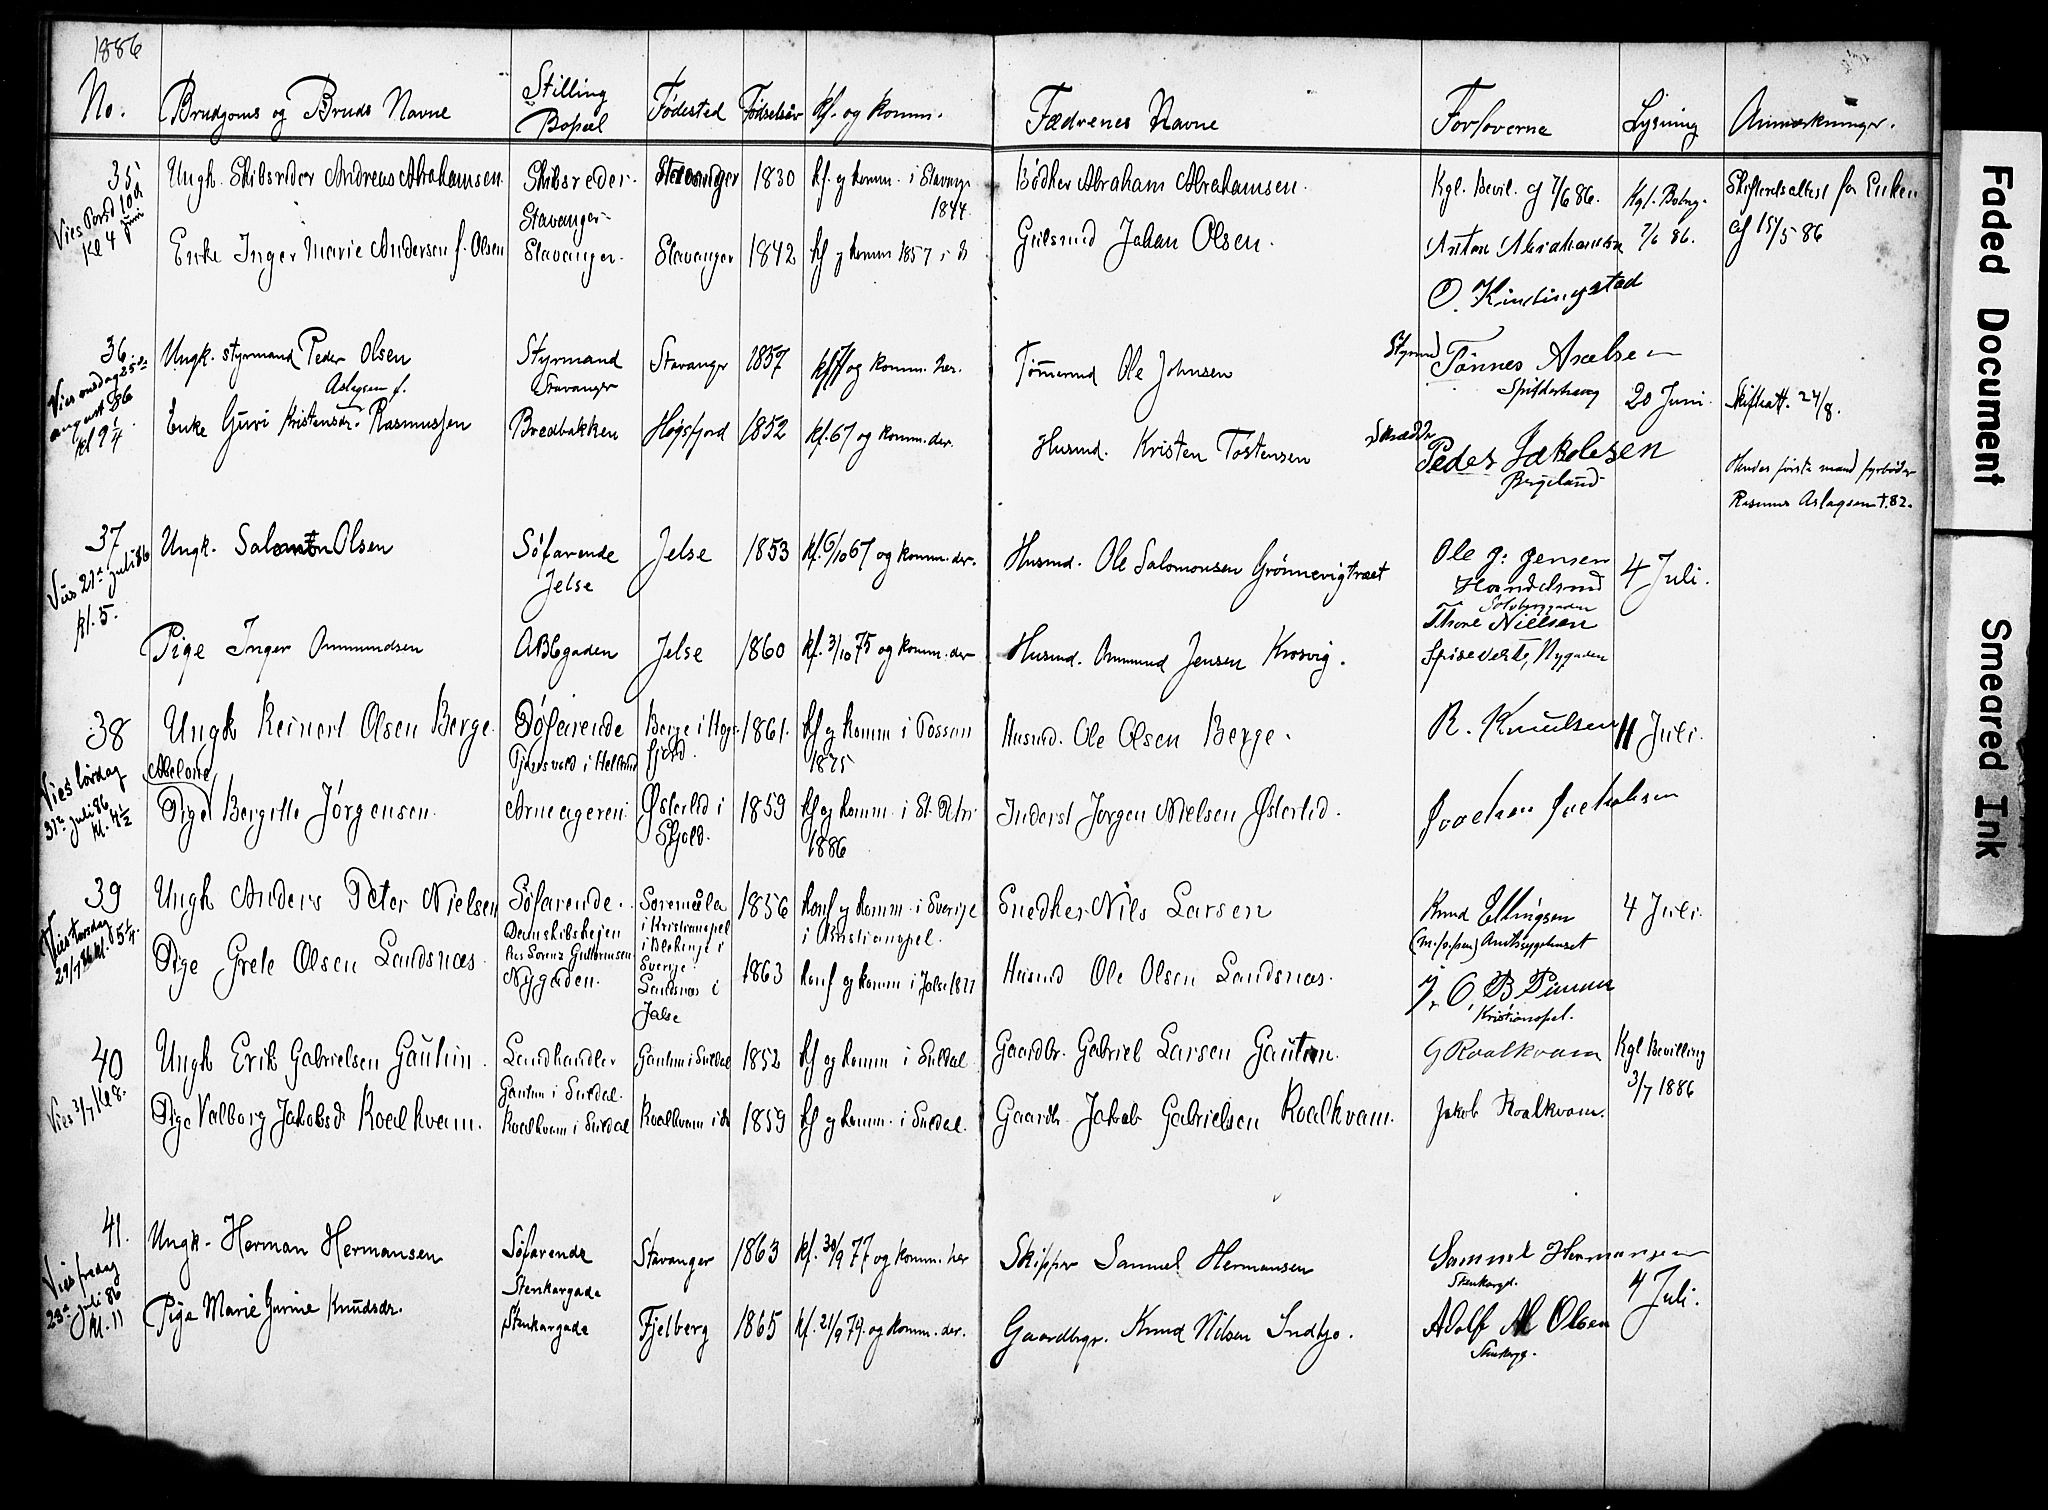 1886
No. Brudgoms og Bruds Navne Stilling Bopæl Fødested Fødselsår kf. og komm. Fædrenes Navne Forloverne Lysning Anmærkninger.
35 Ungk. Skibsreder Andreas Abrahamsen Skibsreder Stavanger 1830 kf. og komm. i Stavanger 1844 Bødker Abraham Abrahamsen. Kgl. Bevil. af 7/6 86. Kgl. Bevilg. 7/6 86. Skifteretsattest for Enken af 15/5 86
Vies Torsd 10de Juni Kl 4
Stavanger
Enke Inger Marie Andersen f. Olsen Stavanger Stavanger 1842 kf og komm 1857 i Johan Olsen. Anton Abrahamsen
O. Kindingstad
36 Ungk. styrmand Peder Olsen Styrmand Stavanger Stavanger 1857 og komm. her. Tømmermd Ole Johnsen Styrmd Tønnes Axelsen
Vies onsdag 25de august 86 kl 9 1/4
Aslagsen f. 20 Juni Skifteatt. 24/8.
Enke Guri Kristensdr. Rasmussen Bredbakken Høgsfjord 1852 kf. 67 og komm. der. Husmd. Kristen Tostensen Skrædder Peder Jakobsen
Bergeland
Hendes første mand fyrbøder
Rasmus Aslagsen †.82.
37 Ungk. Salomon Olsen Søfarende Jelse Jelse 1853 kf. 6/10 67 og komm. der. Husmd. Ole Salomonsen Grønnevigtræet Ole J. Jensen Handelsmd 4 Juli.
Vies 21de juli 86 kl. 5.
Thore Nielsen
Pige Inger Ommundsen ABCgaden Jelse 1860 kf. 3/10 75 og komm. der Husmd. Ommund Jensen Krosvig. Spisevert, Nygaden
38 Ungk Reinert Olsen Berge Søfarende Berge i Høgsfjord. 1861. kf og komm i Fossan 1875 Husmd. Ole Olsen Berge. R. Knudsen 11 Juli.
Vies lørdag 31te juli 86 kl. 4 1/2
Abelone
Pige Bergitte Jørgensen. Arneageren Østerlid i Skjold. 1859 kf og komm. i St. Petri 1886 Inderst Jørgen Nielsen Østerlid. Jakobsen
39 Ungk Anders Peter Nielsen Søfarende. Sørmåla i Kristianopel i Blekinge i Sverige 1856 konf og komm. i Sverige i Kristianopel. Snedker Nils Larsen Knud Ellingsen 4 Juli.
Vies torsdag 29/7 86 kl. 5 1/4.
Amtssygehuset
Pige Grete Olsen Landsnæs. Nygaden. Landsnæs i Jelse 1863 konf og komm i Jelse 1877 Husmd Ole Olsen Landsnæs.
Kristianopel.
40 Ungk Erik Gabrielsen Gautun Landhandler Gautun i Suldal 1852 kf og komm i Suldal Gaardbr. Gabriel Larsen Gautun. G Roalkvam Kgl Bevilling 3/7 1886
Vies 3/7 Kl 8.
Gautun i Suldal.
Pige Valborg Jakobsd Roalkvam. Roalkvam i Suldal Roalkvam i ds 1859 kf og komm. i Suldal. Gaardb. Jakob Gabrielsen Roalkvam. Jakob Roalkvam.
41. Ungk. Herman Hermansen Søfarende Stavanger 1863 kf. 30/9 77 og komm. her Skipper Samuel Hermansen Samuel Hermansen
Vies fredag 23de juli 86 kl. 11
Stenkargade Stenkargd. 4 Juli.
Pige Marie Gurine Knudsdr. Stenkargade Fjelberg 1865 kf. 21/9 79. og komm. der. Gaardbgr. Knud Nilsen Indbjo. Adolf M Olsen
Stenkargd.
Faded Document
Smeared Ink